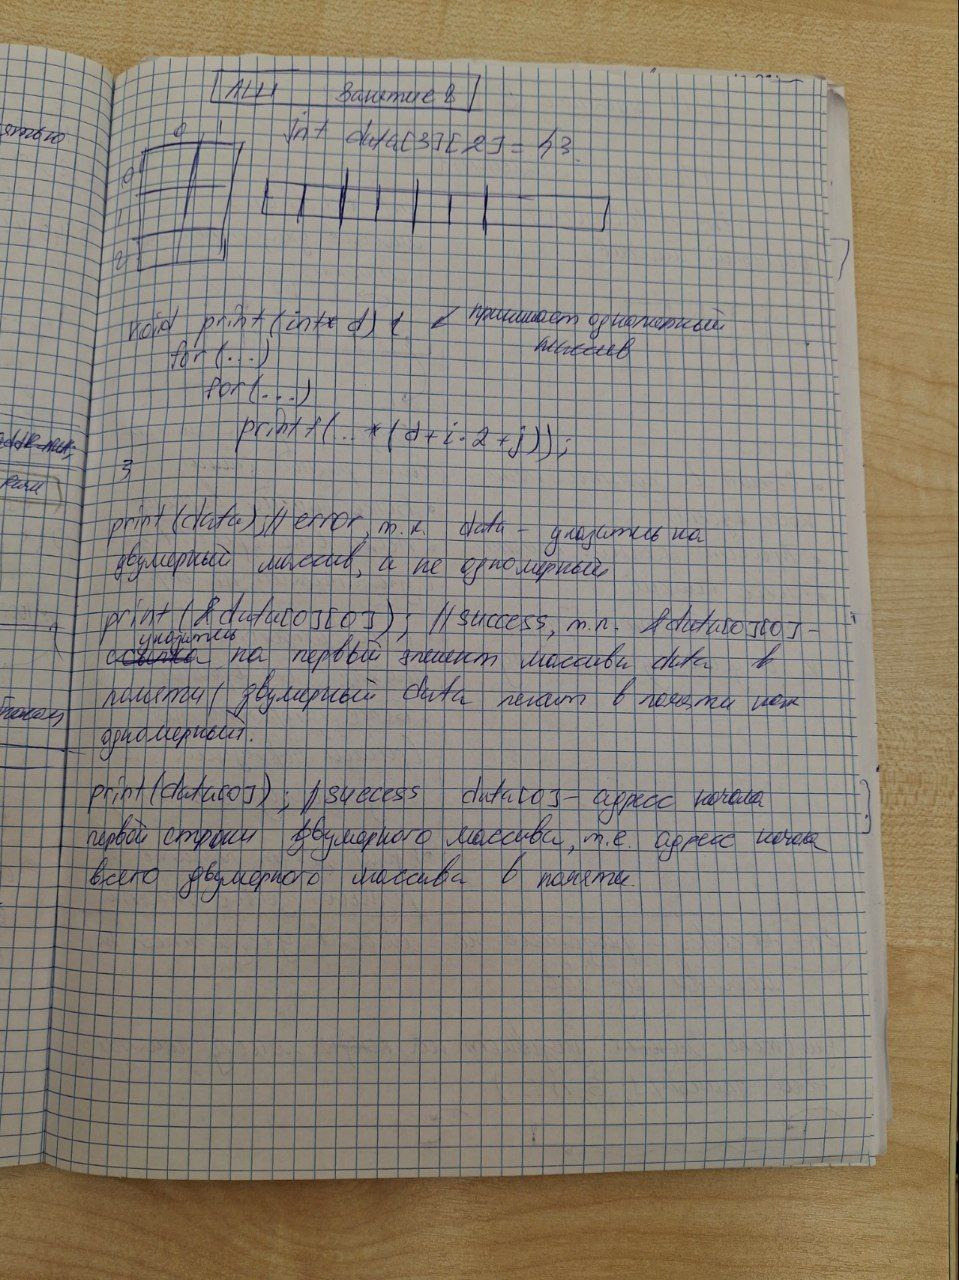 АЦП Занятие 8
int data[3][2] = {}
0 1
0
1
2
void print(int* d) { ↙ принимает одномерный
массив
for(...)
for(...)
printf(... *(d+i·2+j));
}
print(data); // error, т.к. data - указатель на
двумерный массив, а не одномерный
print(&data[0][0]); // success, т.к. &data[0][0] -
указатель
ссылка на первый элемент массива data в
памяти, двумерный data лежит в памяти как
одномерный.
print(data[0]); // success data[0] - адрес начала
первой строки двумерного массива, т.е. адрес начала
всего двумерного массива в памяти.